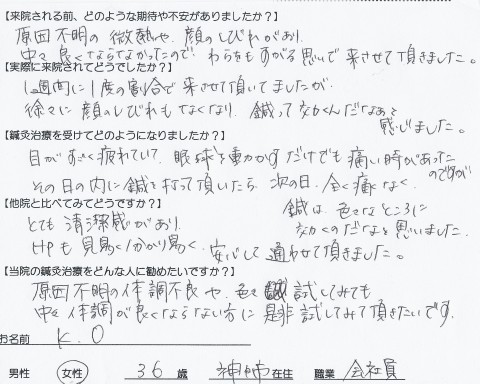 【来院される前、どのような期待や不安がありましたか？】
原因不明の微熱や、顔のしびれがあり、
中々良くならなかったので、わらをもすがる思いで来させて頂きました。
【実際に来院されてどうでしたか？】
1週間に1度の割合で来させて頂いてましたが
徐々に顔のしびれもなくなり、鍼って効くんだなぁと
感じました。
【鍼灸治療を受けてどのようになりましたか？】
目がすごく疲れていて、眼球を動かすだけでも痛い時があった
のですが
その日の内に鍼を打って頂いたら、次の日、全く痛くなく、
鍼は、色々なところに
効くのだなと思いました。
【他院と比べてみてどうですか？】
とても清潔感があり、
HPも見易く分かり易く、安心して通わせて頂きました。
【当院の鍼灸治療をどんな人に勧めたいですか？】
原因不明の体調不良や、色々試してみても
中々体調が良くならない方に是非試してみて頂きたいです。
お名前 K.O
男性 女性 36 歳 神埼 在住 職業 会社員